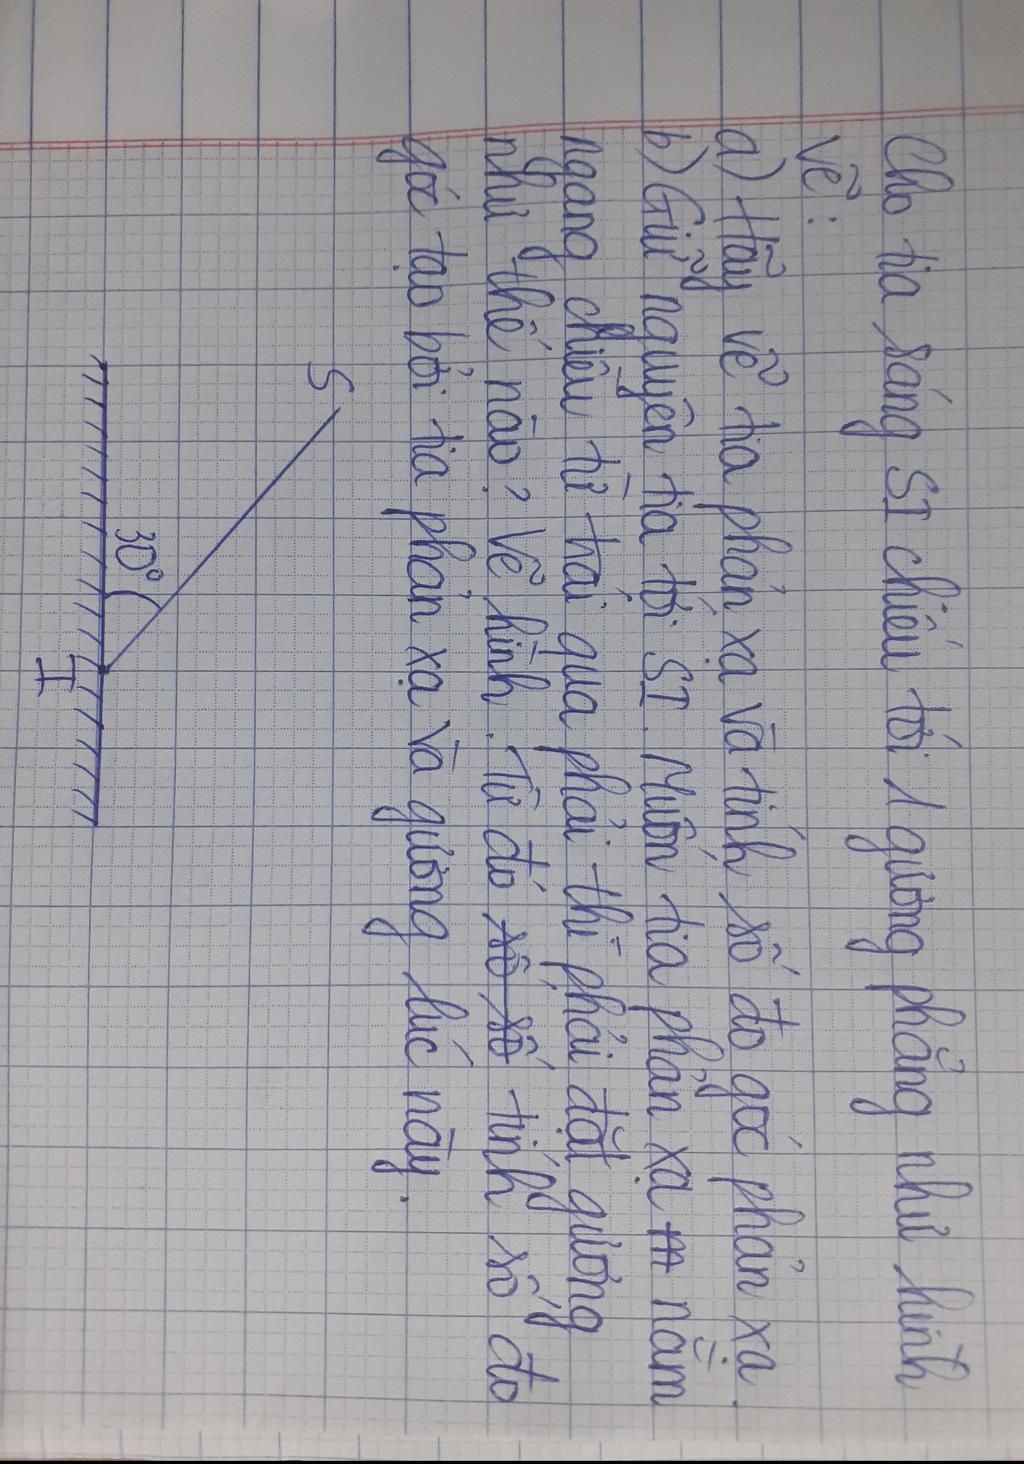 Cho tia sáng SI chiếu tới 1 gương phẳng như hình
vẽ:
a) Hãy vẽ tia phản xạ và tính số đo góc phản xạ.
b) Giữ nguyên tia tới SI. Muốn tia phản xạ nằm
ngang chiều từ trái qua phải thì phải đặt gương
như thế nào? Vẽ hình. Từ đó tính số đo
góc tạo bởi tia phản xạ và gương lúc này.
S
30°
I